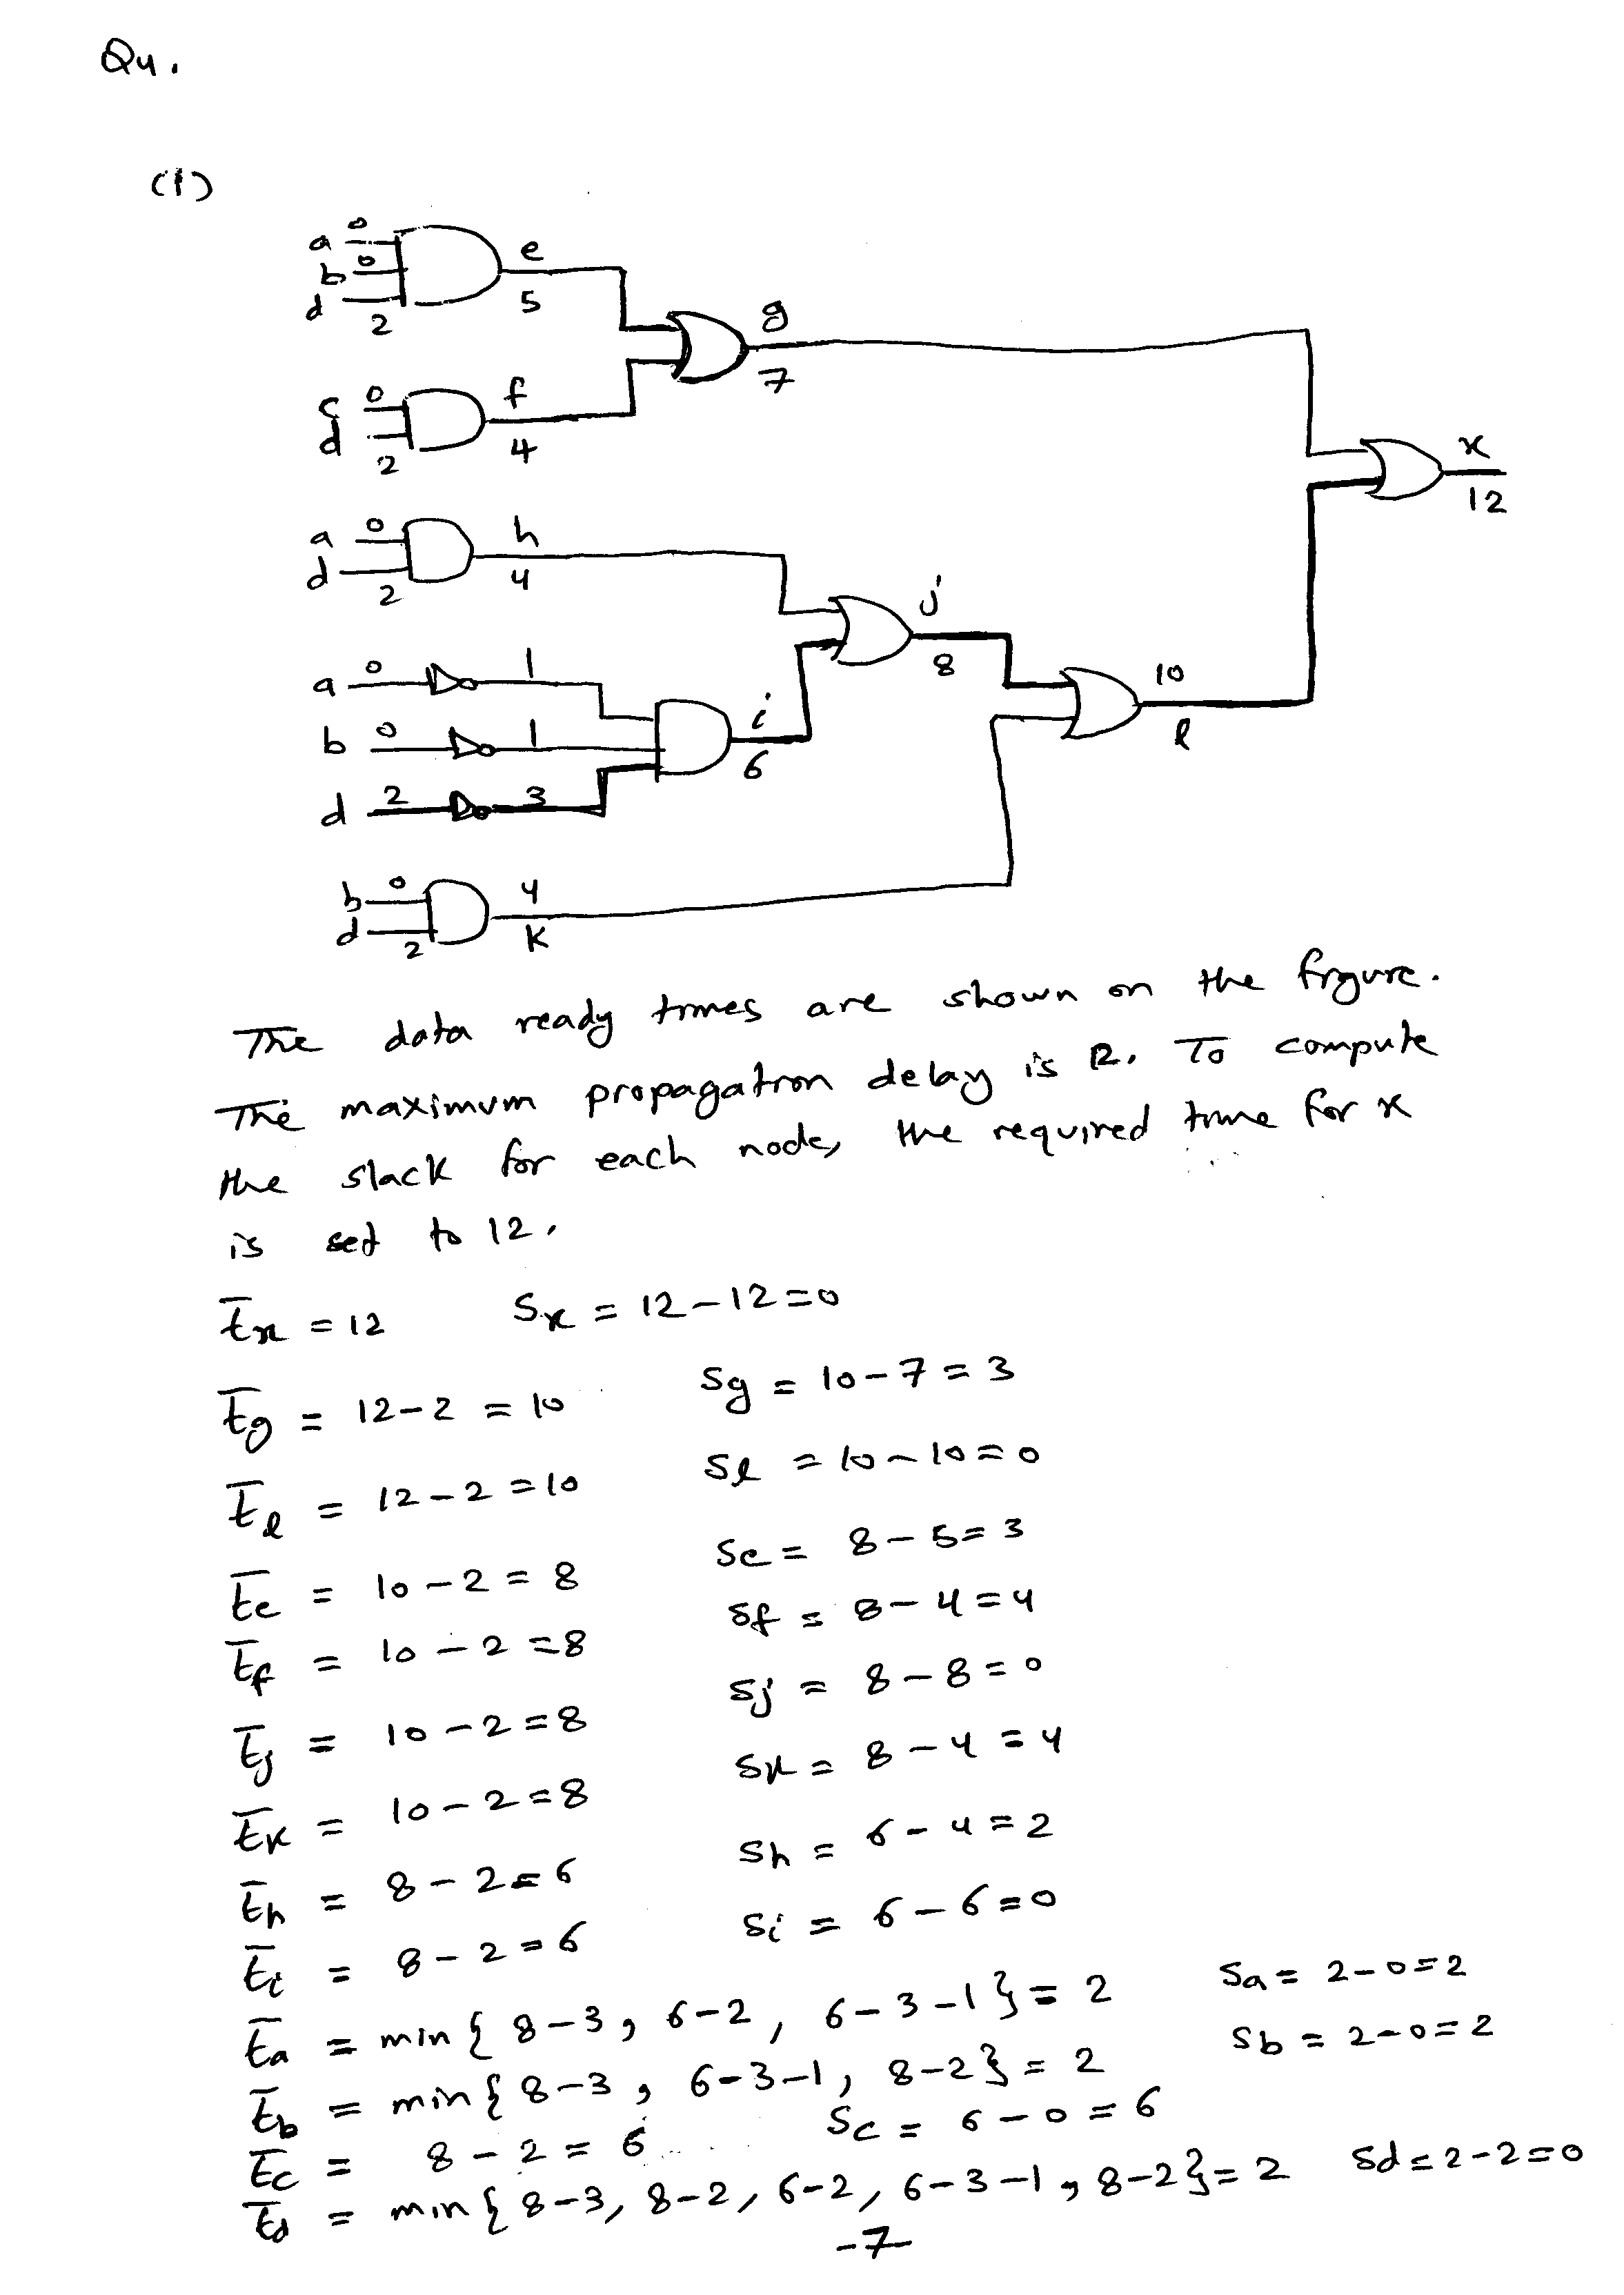 Q4.
(i)
a 0
b 0
d 2
e
5
g
7
c 0
d 2
f
4
x
12
a 0
d 2
h
4
j
8
a 0 1
b 0 1
d 2 3
i
6
10
l
b 0
d 2
4
k
The data ready times are shown on the figure.
The maximum propagation delay is 12. To compute
the slack for each node, the required time for x
is set to 12.
t̄x = 12 Sx = 12-12=0
t̄g = 12-2 = 10 Sg = 10-7 = 3
t̄l = 12-2 = 10 Sl = 10-10=0
t̄e = 10-2 = 8 Se = 8-5= 3
t̄f = 10-2 =8 Sf = 8-4=4
t̄j = 10-2=8 Sj = 8-8=0
t̄k = 10-2=8 Sk = 8-4=4
t̄h = 8-2=6 Sh = 6-4=2
t̄i = 8-2=6 Si = 6-6=0
t̄a = min{ 8-3, 6-2, 6-3-1}= 2 Sa = 2-0=2
t̄b = min{ 8-3, 6-3-1, 8-2}= 2 Sb = 2-0=2
t̄c = 8-2 = 6 Sc = 6-0=6
t̄d = min{ 8-3, 8-2, 6-2, 6-3-1, 8-2}= 2 Sd=2-2=0
-7